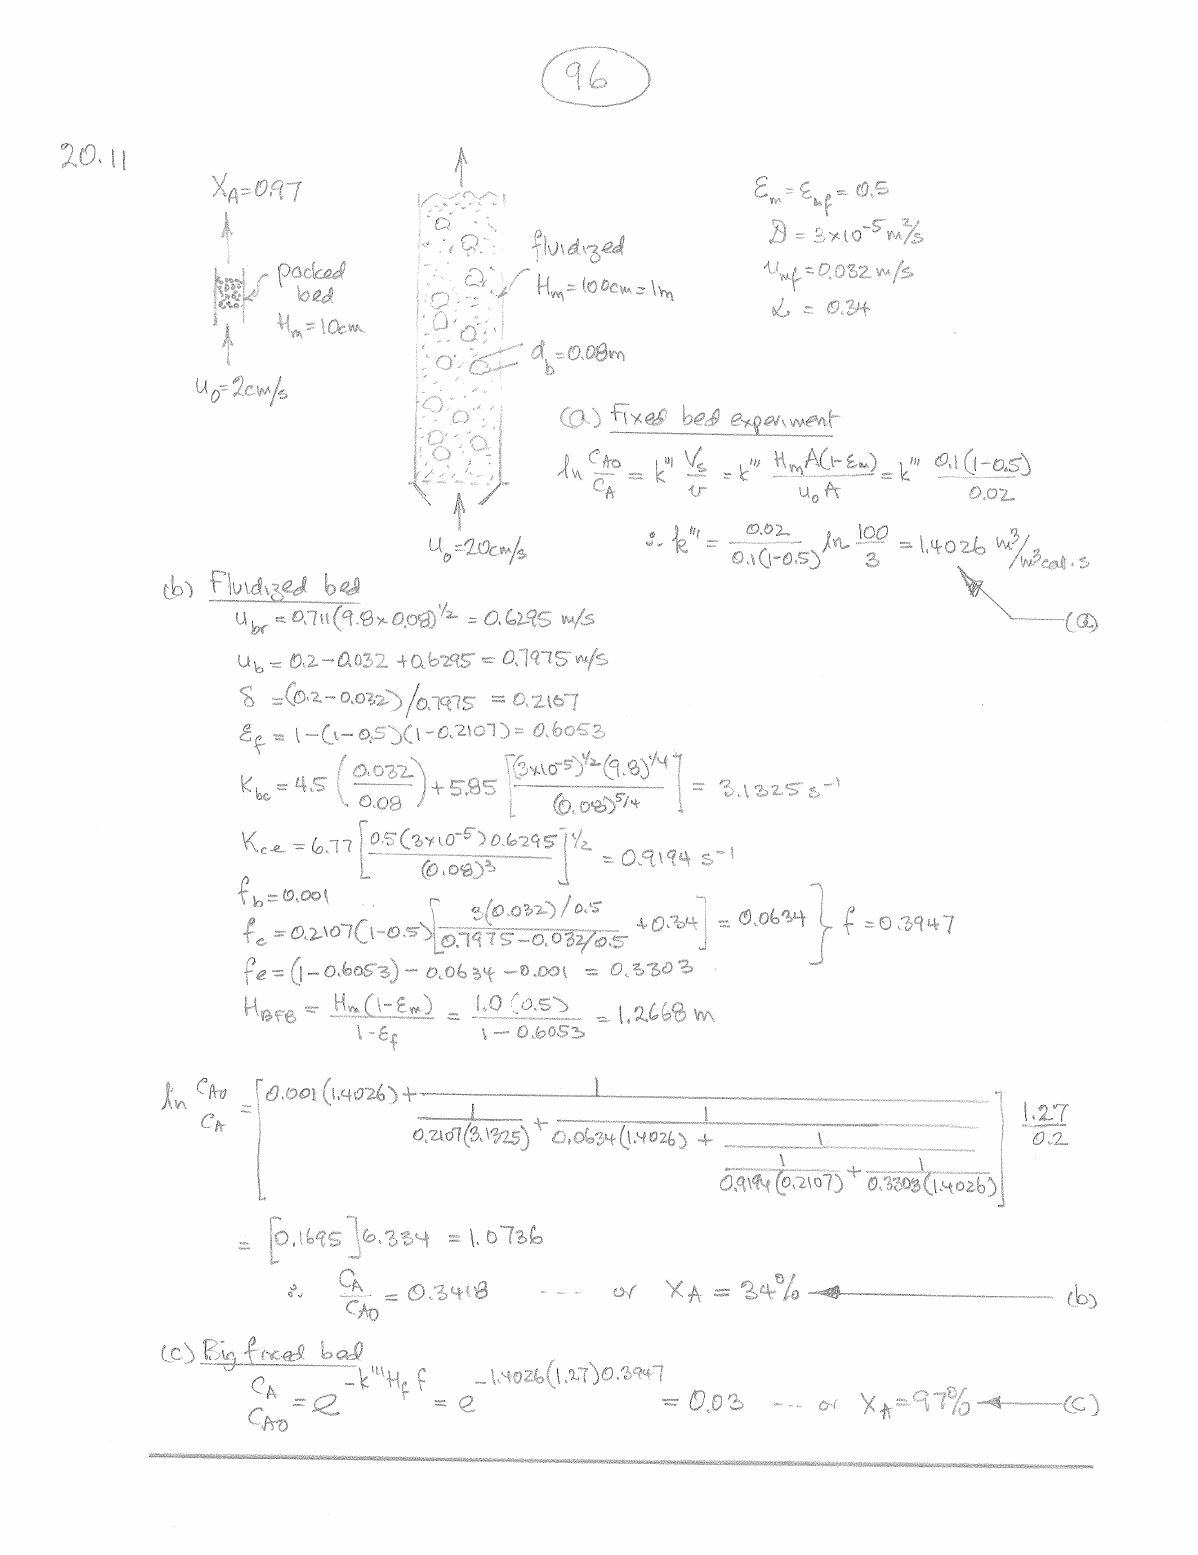 96
20.11
X_A = 0.97
packed bed
H_m = 10cm
u_0 = 2cm/s
fluidized
H_m = 100cm = 1m
d_b = 0.08m
u_0 = 20cm/s
ε_m = ε_mf = 0.5
𝒟 = 3×10^-5 m²/s
u_mf = 0.032 m/s
α = 0.34
(a) Fixed bed experiment
ln C_A0/C_A = k''' V_s/v = k''' H_m A(1-ε_m)/(u_0 A) = k''' 0.1(1-0.5)/0.02
∴ k''' = 0.02/(0.1(1-0.5)) ln 100/3 = 1.4026 m³/m³cat.s
(a)
(b) Fluidized bed
u_br = 0.711(9.8×0.08)^1/2 = 0.6295 m/s
u_b = 0.2-0.032+0.6295 = 0.7975 m/s
δ = (0.2-0.032)/0.7975 = 0.2107
ε_f = 1-(1-0.5)(1-0.2107) = 0.6053
K_bc = 4.5 (0.032/0.08) + 5.85 [(3×10^-5)^1/2 (9.8)^1/4 / (0.08)^5/4] = 3.1325 s^-1
K_ce = 6.77 [0.5(3×10^-5)0.6295 / (0.08)^3]^1/2 = 0.9194 s^-1
f_b = 0.001
f_c = 0.2107(1-0.5)[3(0.032)/0.5 / (0.7975-0.032/0.5) + 0.34] = 0.0634 } f = 0.3947
f_e = (1-0.6053)-0.0634-0.001 = 0.3303
H_BFB = H_m(1-ε_m)/(1-ε_f) = 1.0(0.5)/(1-0.6053) = 1.2668 m
ln C_A0/C_A = [0.001(1.4026) + 1/(1/(0.2107(3.1325)) + 1/(0.0634(1.4026) + 1/(1/(0.9194(0.2107)) + 1/(0.3303(1.4026)))))] 1.27/0.2
= [0.1695] 6.334 = 1.0736
∴ C_A/C_A0 = 0.3418 --- or X_A = 34% (b)
(c) Big fixed bed
C_A/C_A0 = e^(-k''' H_f f) = e^(-1.4026(1.27)0.3947) = 0.03 --- or X_A = 97% (c)